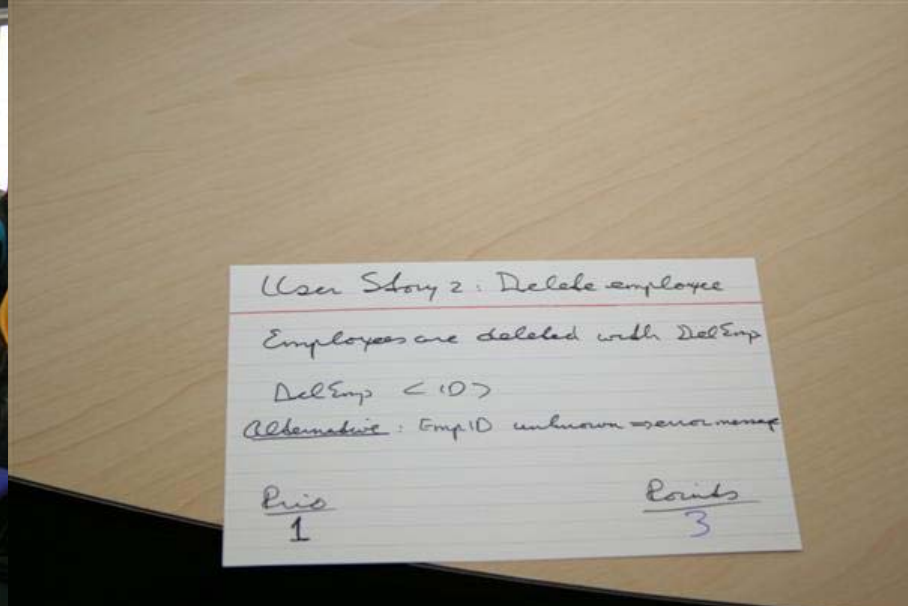 User Story 2: Delete employee
Employees are deleted with DelEmp
DelEmp <ID>
Alternative: EmpID unknown => error message
Prio
1
Points
3